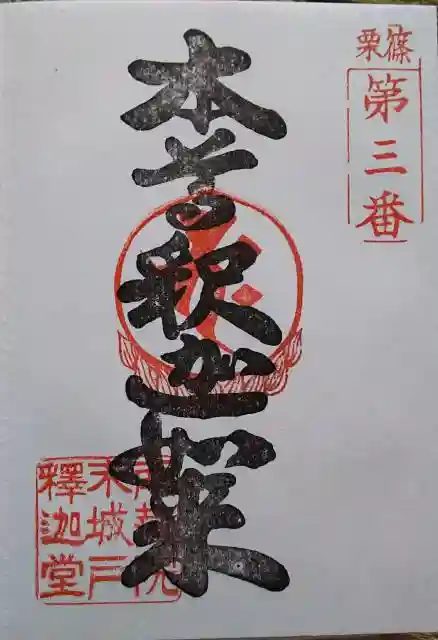 篠栗
第三番
本尊釈迦如来
城戸
釋迦堂